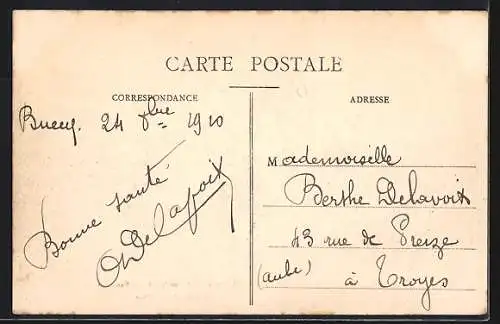 CARTE POSTALE
CORRESPONDANCE
ADRESSE
Bucey. 24 8bre 1910
Bonne santé
Delavoix
Mademoiselle
Berthe Delavoix
43 rue de Preize
(aube) à Troyes